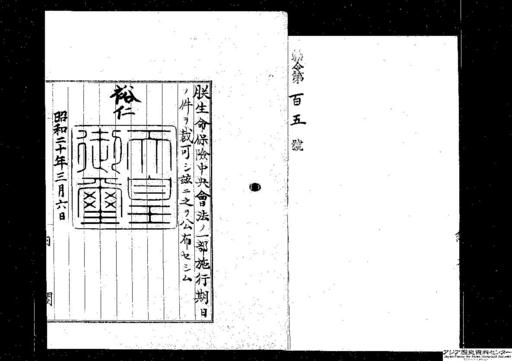 勅令第百五號
朕生命保險中央會法ノ一部施行期日
ノ件ヲ裁可シ茲ニ之ヲ公布セシム
裕仁
天皇御璽
昭和二十年三月六日
内閣
アジア歴史資料センター